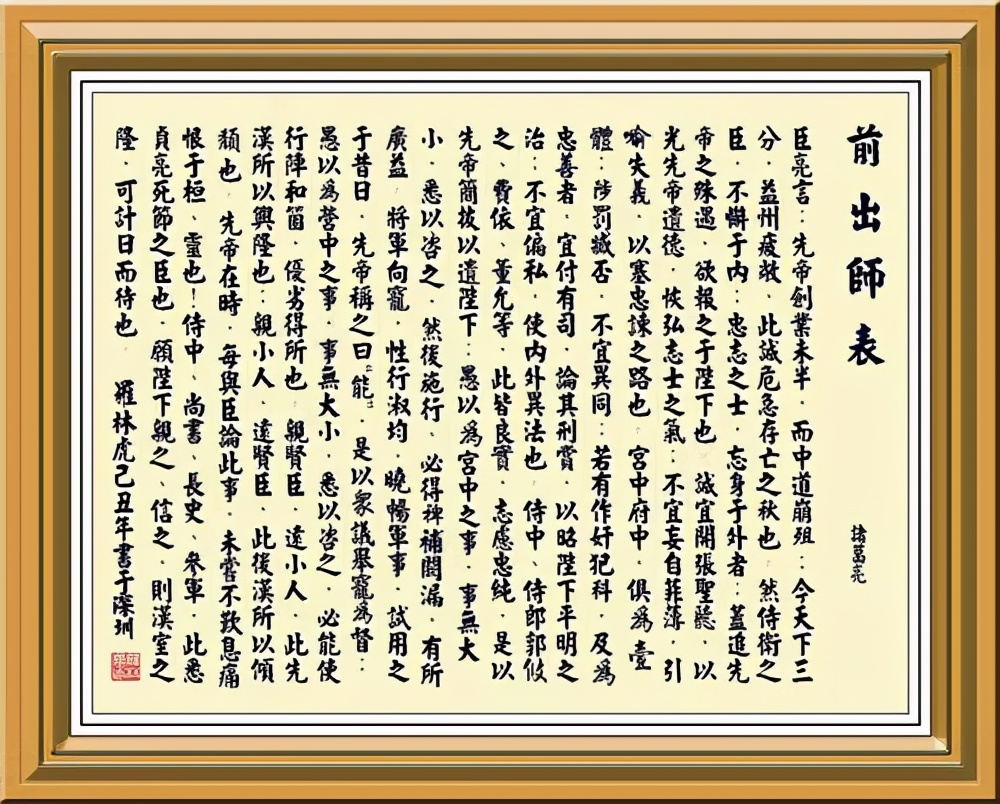 前出師表
諸葛亮
臣亮言：先帝創業未半．而中道崩殂：今天下三
分．益州疲敝．此誠危急存亡之秋也．然侍衛之
臣．不懈于内：忠志之士．忘身于外者：蓋追先
帝之殊遇．欲報之于陛下也．誠宜開張聖聽．以
光先帝遺德．恢弘志士之氣：不宜妄自菲薄．引
喻失義．以塞忠諫之路也．宮中府中．俱為壹
體：陟罰臧否．不宜異同：若有作奸犯科．及為
忠善者．宜付有司．論其刑賞．以昭陛下平明之
治：不宜偏私．使内外異法也．侍中、侍郎郭攸
之、費依、董允等．此皆良實．志慮忠純．是以
先帝簡拔以遺陛下：愚以為宮中之事．事無大
小．悉以咨之．然後施行．必得裨補闕漏．有所
廣益．將軍向寵．性行淑均．曉暢軍事．試用之
于昔日．先帝稱之曰“能”．是以衆議舉寵為督：
愚以為營中之事．事無大小．悉以咨之．必能使
行陣和篃．優劣得所也．親賢臣．遠小人．此先
漢所以興隆也：親小人．遠賢臣．此後漢所以傾
頹也．先帝在時．每與臣論此事．未嘗不歎息痛
恨于桓、靈也！侍中、尚書、長史、參軍．此悉
貞亮死節之臣也．願陛下親之、信之．則漢室之
隆．可計日而待也．羅林虎己丑年書于深圳